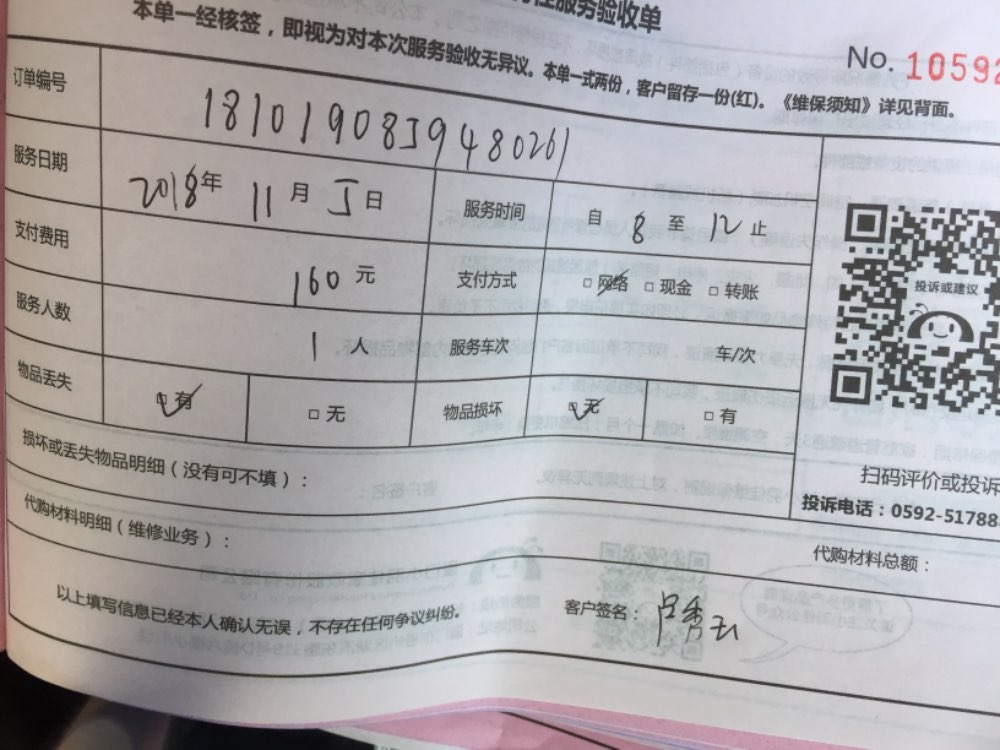 性服务验收单
本单一经核签，即视为对本次服务验收无异议。本单一式两份，客户留存一份(红)。《维保须知》详见背面。
No. 10592
订单编号 1810190859480261
服务日期 2018年 11 月 5 日 服务时间 自 8 至 12 止
支付费用 160 元 支付方式 □ 网络 □ 现金 □ 转账
服务人数 1 人 服务车次 车/次
物品丢失 □ 有 □ 无 物品损坏 □ 无 □ 有
投诉或建议
扫码评价或投诉
投诉电话：0592-51788
损坏或丢失物品明细（没有可不填）：
代购材料明细（维修业务）：
代购材料总额：
以上填写信息已经本人确认无误，不存在任何争议纠纷。
客户签名：吕秀云